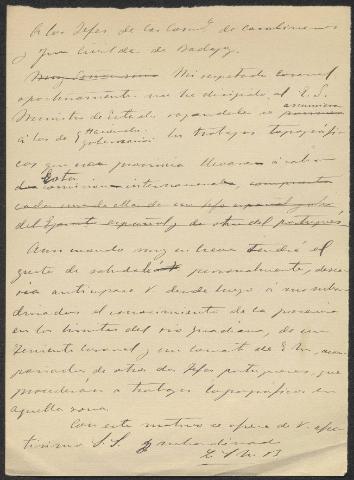 A los Jefes de las Comand.s de Carabineros
y Guar Civil de de Badajoz.
Mi respetado Coronel
oportunamente me he dirigido al E. S.
Ministro de Estado rogandole se
á los de Hacienda Gobernación los trabajos topográfi
cos que esa provincia llevaran á cabo
Esta comision internacional, compuesta
cada una de ella de un Jefe español y otro
del Ejercito español y de otro del portugués
Aun cuando muy en breve tendré el
gusto de saludarle personalmente, desea
ria anticipase V. desde luego á sus subor
dinados el conocimiento de la presencia
en los limites del rio Guadiana, de un
Teniente Coronel y un Comand.te de E. M., acom
pañados de otros dos Jefes portugueses, que
procederán a trabajos topográficos en
aquella zona.
Con este motivo se ofrece de V. afec
tisimo S. S. y subordinado